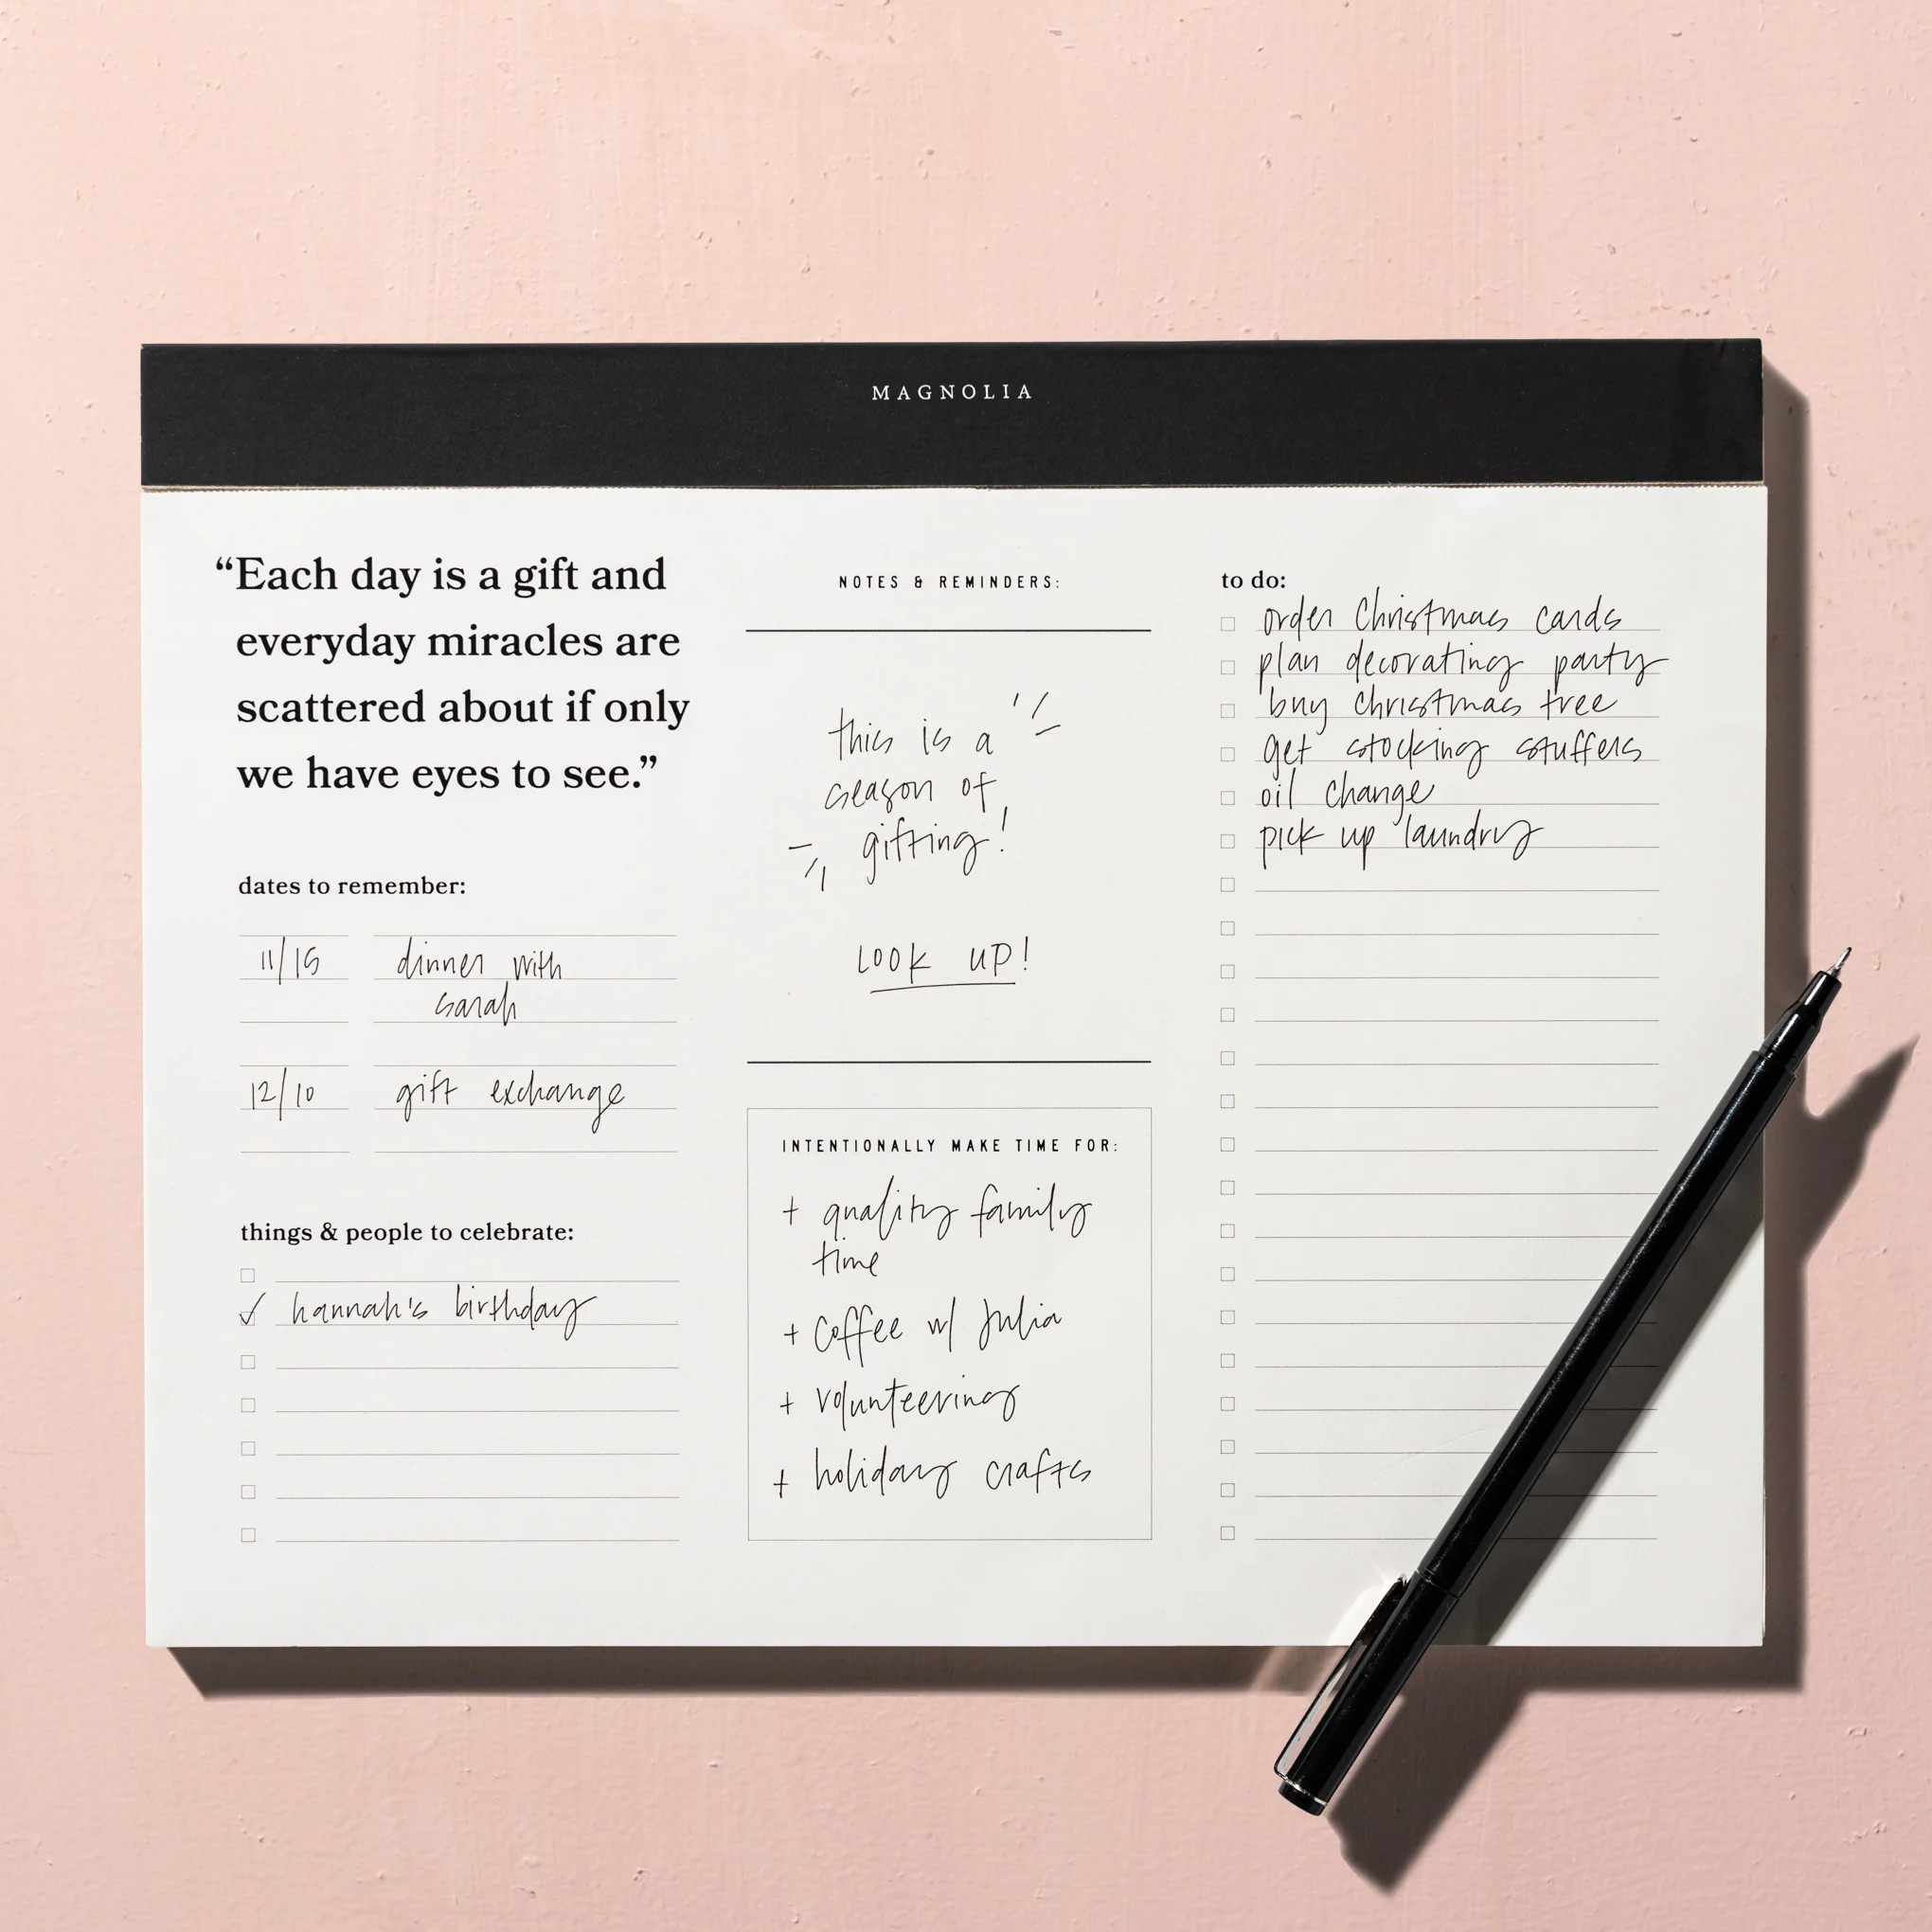 MAGNOLIA
“Each day is a gift and
everyday miracles are
scattered about if only
we have eyes to see.”
dates to remember:
11/15 dinner with
sarah
12/10 gift exchange
things & people to celebrate:
hannah's birthday
NOTES & REMINDERS:
this is a
season of
gifting!
LOOK UP!
INTENTIONALLY MAKE TIME FOR:
+ quality family
time
+ coffee w/ Julia
+ volunteering
+ holiday crafts
to do:
order Christmas cards
plan decorating party
buy Christmas tree
get stocking stuffers
oil change
pick up laundry